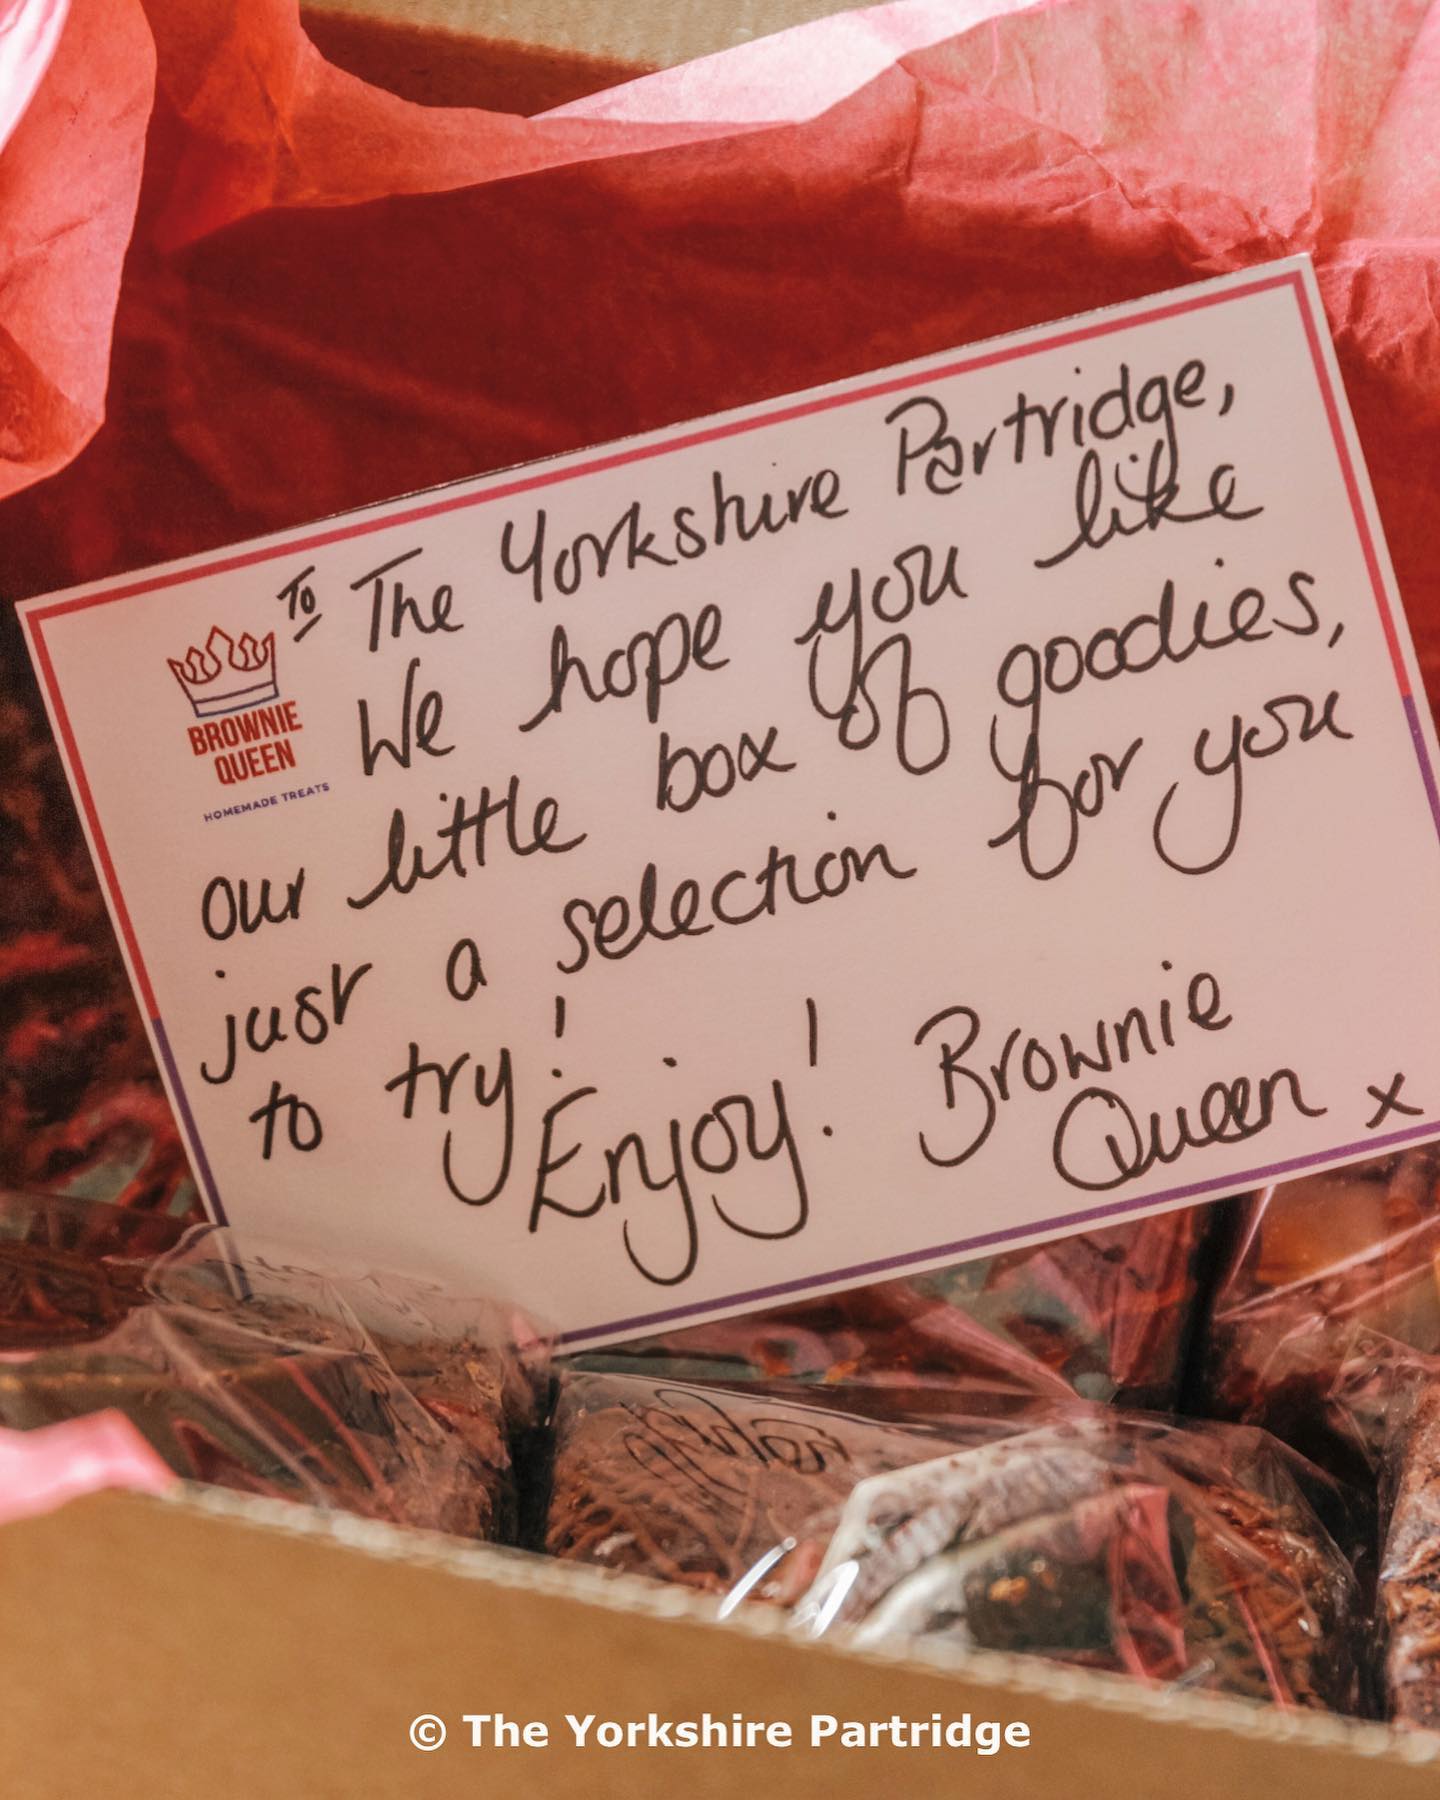 To The Yorkshire Partridge,
We hope you like
our little box of goodies,
just a selection for you
to try! Enjoy! Brownie
Queen x
BROWNIE
QUEEN
HOMEMADE TREATS
© The Yorkshire Partridge